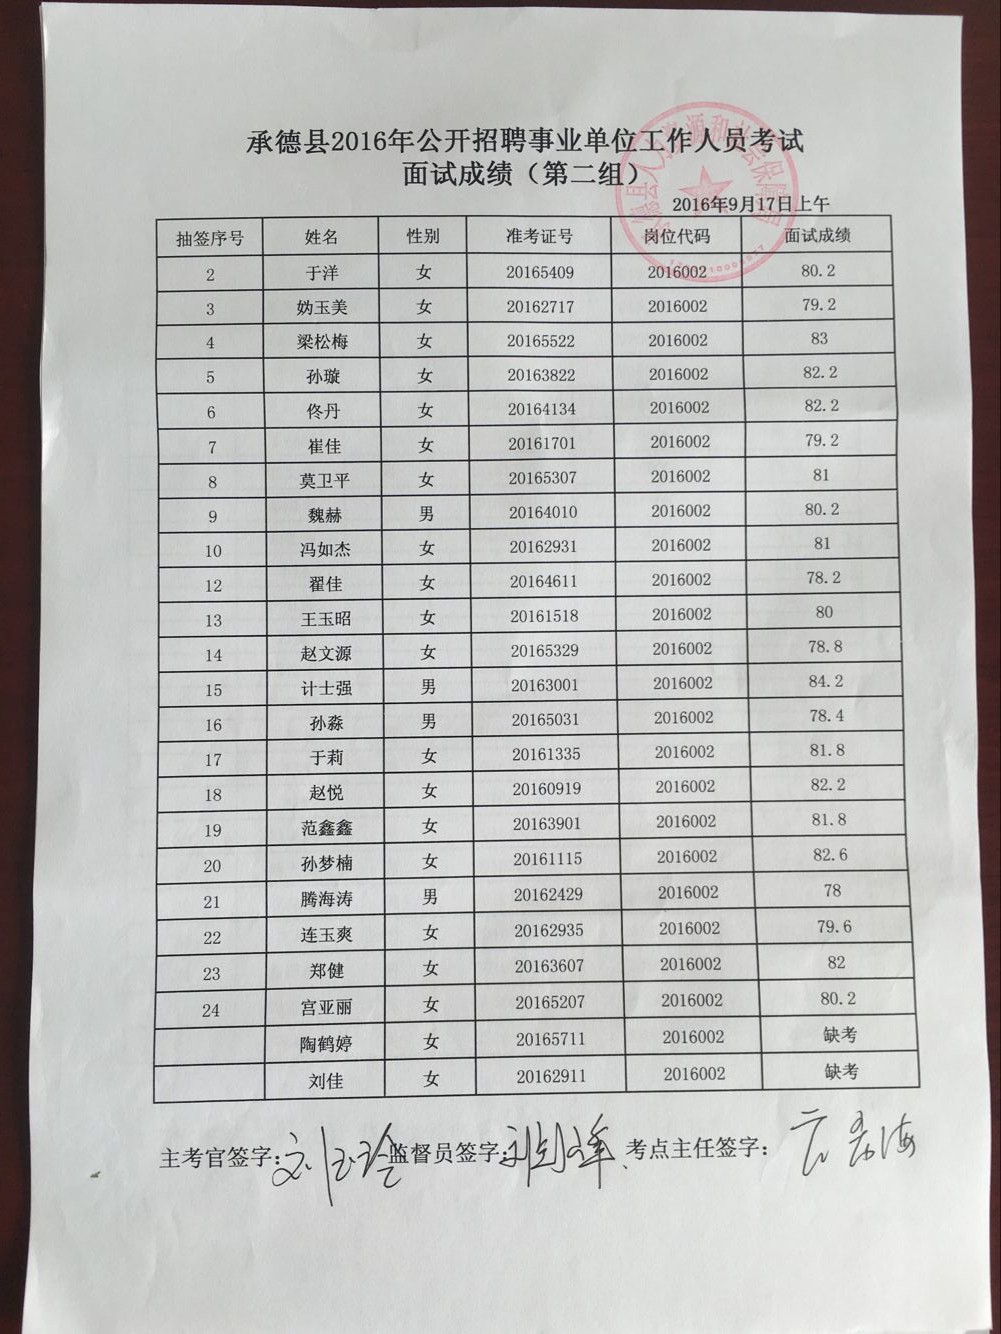 承德县2016年公开招聘事业单位工作人员考试
面试成绩（第二组）
2016年9月17日上午
抽签序号 姓名 性别 准考证号 岗位代码 面试成绩
2 于洋 女 20165409 2016002 80.2
3 妫玉美 女 20162717 2016002 79.2
4 梁松梅 女 20165522 2016002 83
5 孙璇 女 20163822 2016002 82.2
6 佟丹 女 20164134 2016002 82.2
7 崔佳 女 20161701 2016002 79.2
8 莫卫平 女 20165307 2016002 81
9 魏赫 男 20164010 2016002 80.2
10 冯如杰 女 20162931 2016002 81
12 翟佳 女 20164611 2016002 78.2
13 王玉昭 女 20161518 2016002 80
14 赵文源 女 20165329 2016002 78.8
15 计士强 男 20163001 2016002 84.2
16 孙淼 男 20165031 2016002 78.4
17 于莉 女 20161335 2016002 81.8
18 赵悦 女 20160919 2016002 82.2
19 范鑫鑫 女 20163901 2016002 81.8
20 孙梦楠 女 20161115 2016002 82.6
21 腾海涛 男 20162429 2016002 78
22 连玉爽 女 20162935 2016002 79.6
23 郑健 女 20163607 2016002 82
24 宫亚丽 女 20165207 2016002 80.2
陶鹤婷 女 20165711 2016002 缺考
刘佳 女 20162911 2016002 缺考
主考官签字： 监督员签字： 考点主任签字：